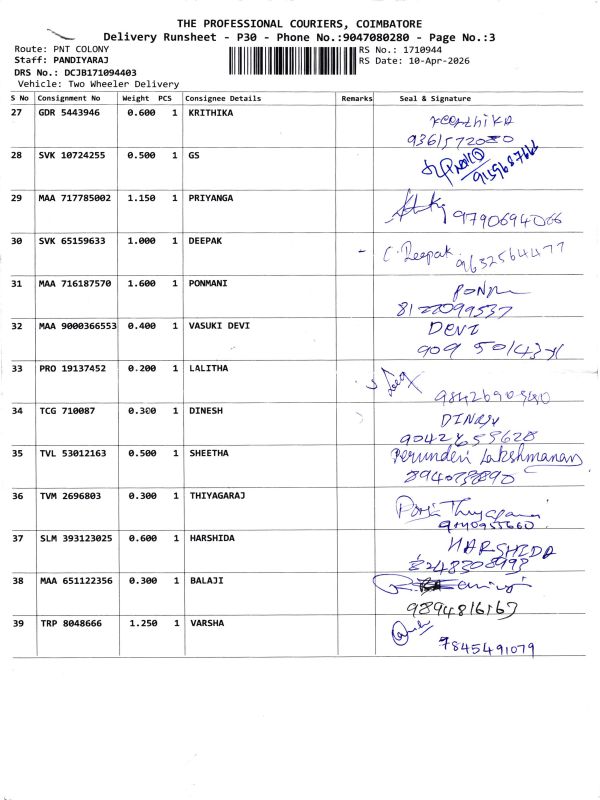 THE PROFESSIONAL COURIERS, COIMBATORE
Delivery Runsheet - P30 - Phone No.:9047080280 - Page No.:3
Route: PNT COLONY RS No.: 1710944
Staff: PANDIYARAJ RS Date: 10-Apr-2026
DRS No.: DCJB171094403
Vehicle: Two Wheeler Delivery
S No Consignment No Weight PCS Consignee Details Remarks Seal & Signature
27 GDR 5443946 0.600 1 KRITHIKA Keerthika
9361572080
28 SVK 10724255 0.500 1 GS
29 MAA 717785002 1.150 1 PRIYANGA
9790694066
30 SVK 65159633 1.000 1 DEEPAK - C. Deepak
9632564477
31 MAA 716187570 1.600 1 PONMANI
8122099537
32 MAA 9000366553 0.400 1 VASUKI DEVI DEVI
33 PRO 19137452 0.200 1 LALITHA
9842690940
34 TCG 710087 0.300 1 DINESH
35 TVL 53012163 0.500 1 SHEETHA Perunderi Lakshmanan
36 TVM 2696803 0.300 1 THIYAGARAJ
37 SLM 393123025 0.600 1 HARSHIDA HARSHIDA
8248308993
38 MAA 651122356 0.300 1 BALAJI
9894816163
39 TRP 8048666 1.250 1 VARSHA
7845491079